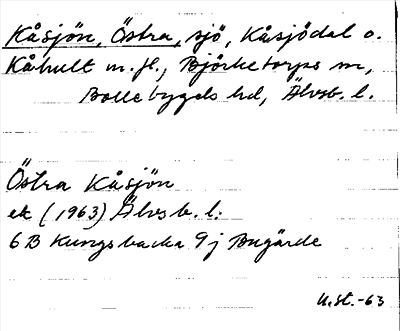 Kåsjön, Östra, sjö, Kåsjödal o.
Kåhult m. fl., Björketorps sn,
Bollebygds hd, Älvsb. l.
Östra Kåsjön
ek (1963) Älvsb. l.
6 B Kungsbacka 9 j Bugärde
U.St.-63